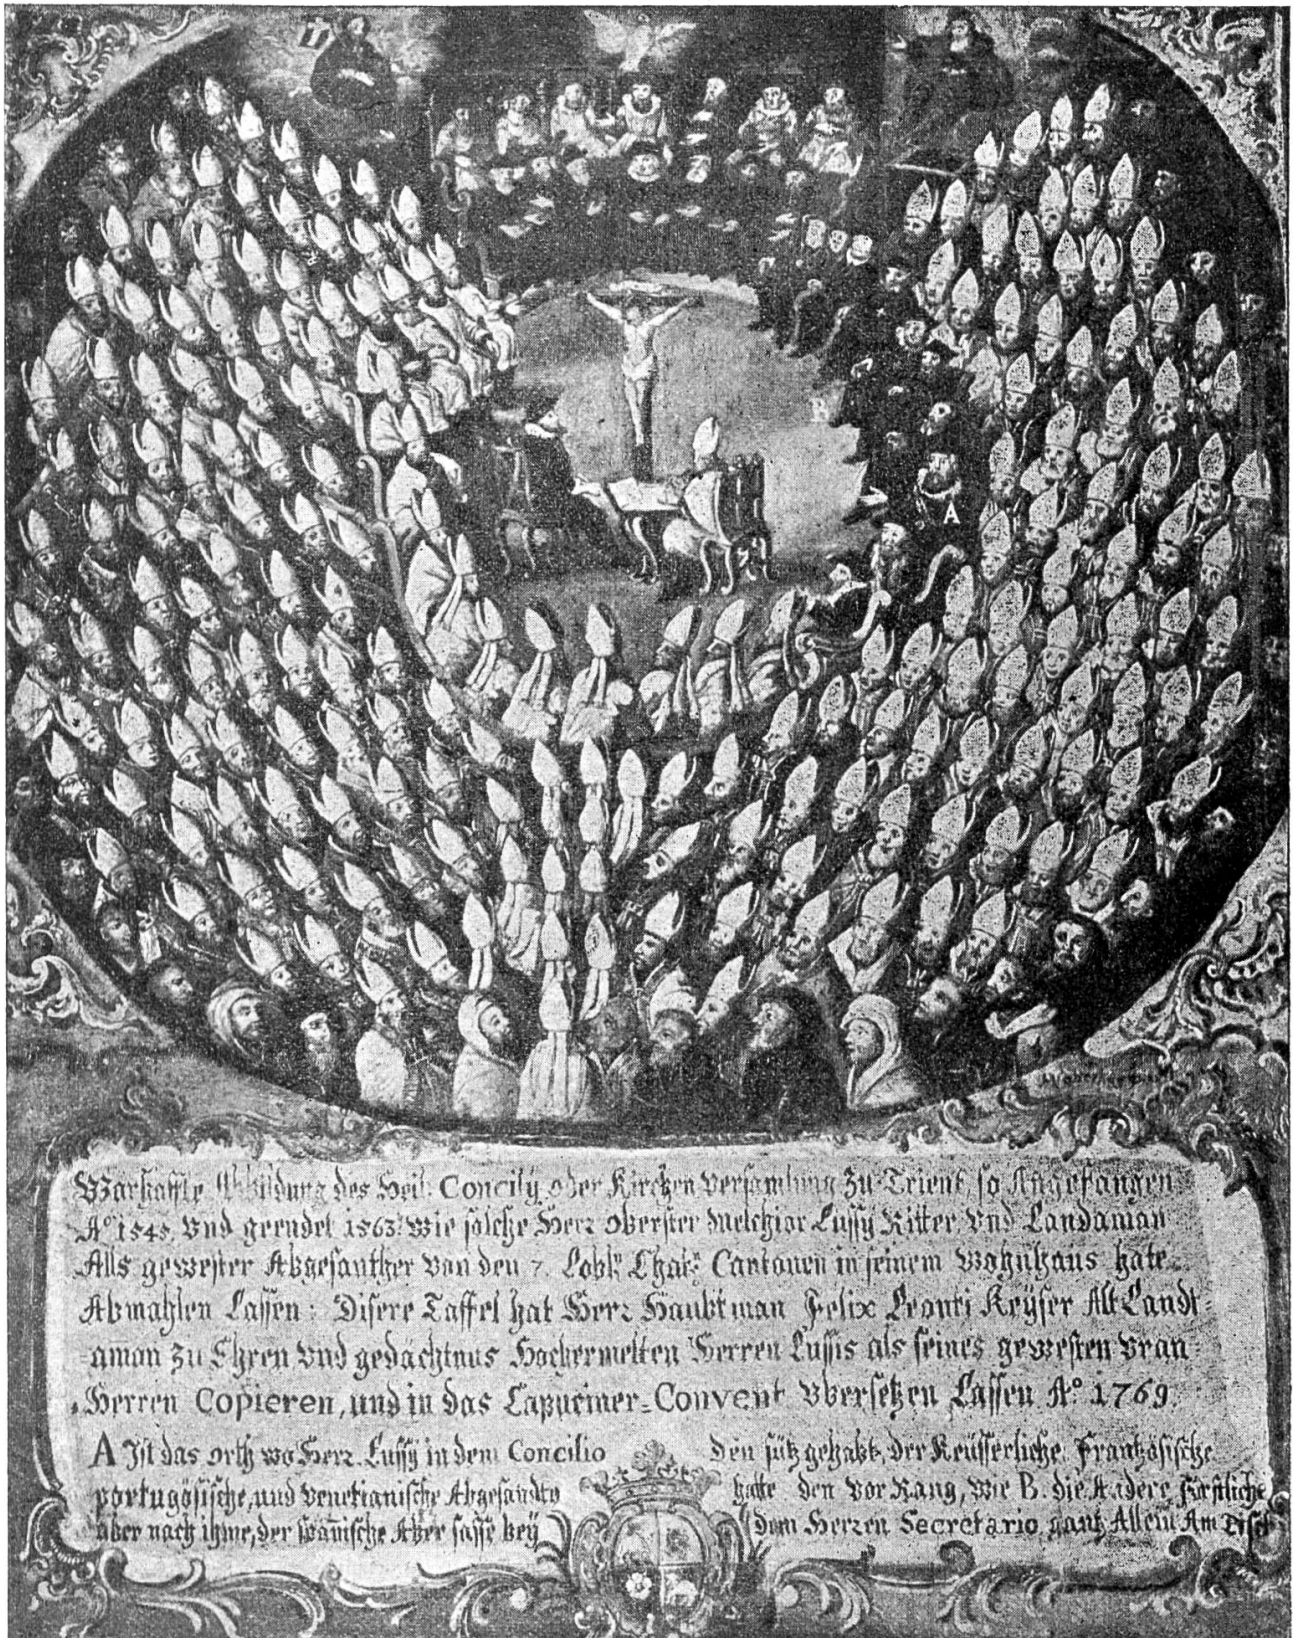 Warhaffte Abbildung des Heil: Concily oder Kirchen Versamlung Zu Trient, so Angefangen
Aº 1545, Vnd geendet 1563: Wie solche Herr Oberster Melchior Lussy Ritter Vnd Landaman
Alls gewester Abgesanther Von den 7. Lobl: Cath: Cantonen in seinem Wohnhaus hate
Abmahlen Lassen: Disere Taffel hat Herr Haubtman Felix Leonti Keyser Alt Landt-
aman Zu Ehren Vnd gedächtnus Hochermelten Herren Lussis als seines gewesten Vran
Herren Copieren, und in das Capuciner=Convent Vbersetzen Lassen Aº 1769.
A Jst das orth wo Herr Lussy in dem Concilio den sitz gehabt, der Keüsserliche, Frantzösische
portugösische, und Venetianische Abgesandte hatte den Vor Rang, Wie B. die Andere Fürstliche
aber nach ihme, der spanische Aber sasse bey dem Herren Secretario, gantz Allein Am Tisch
A
B